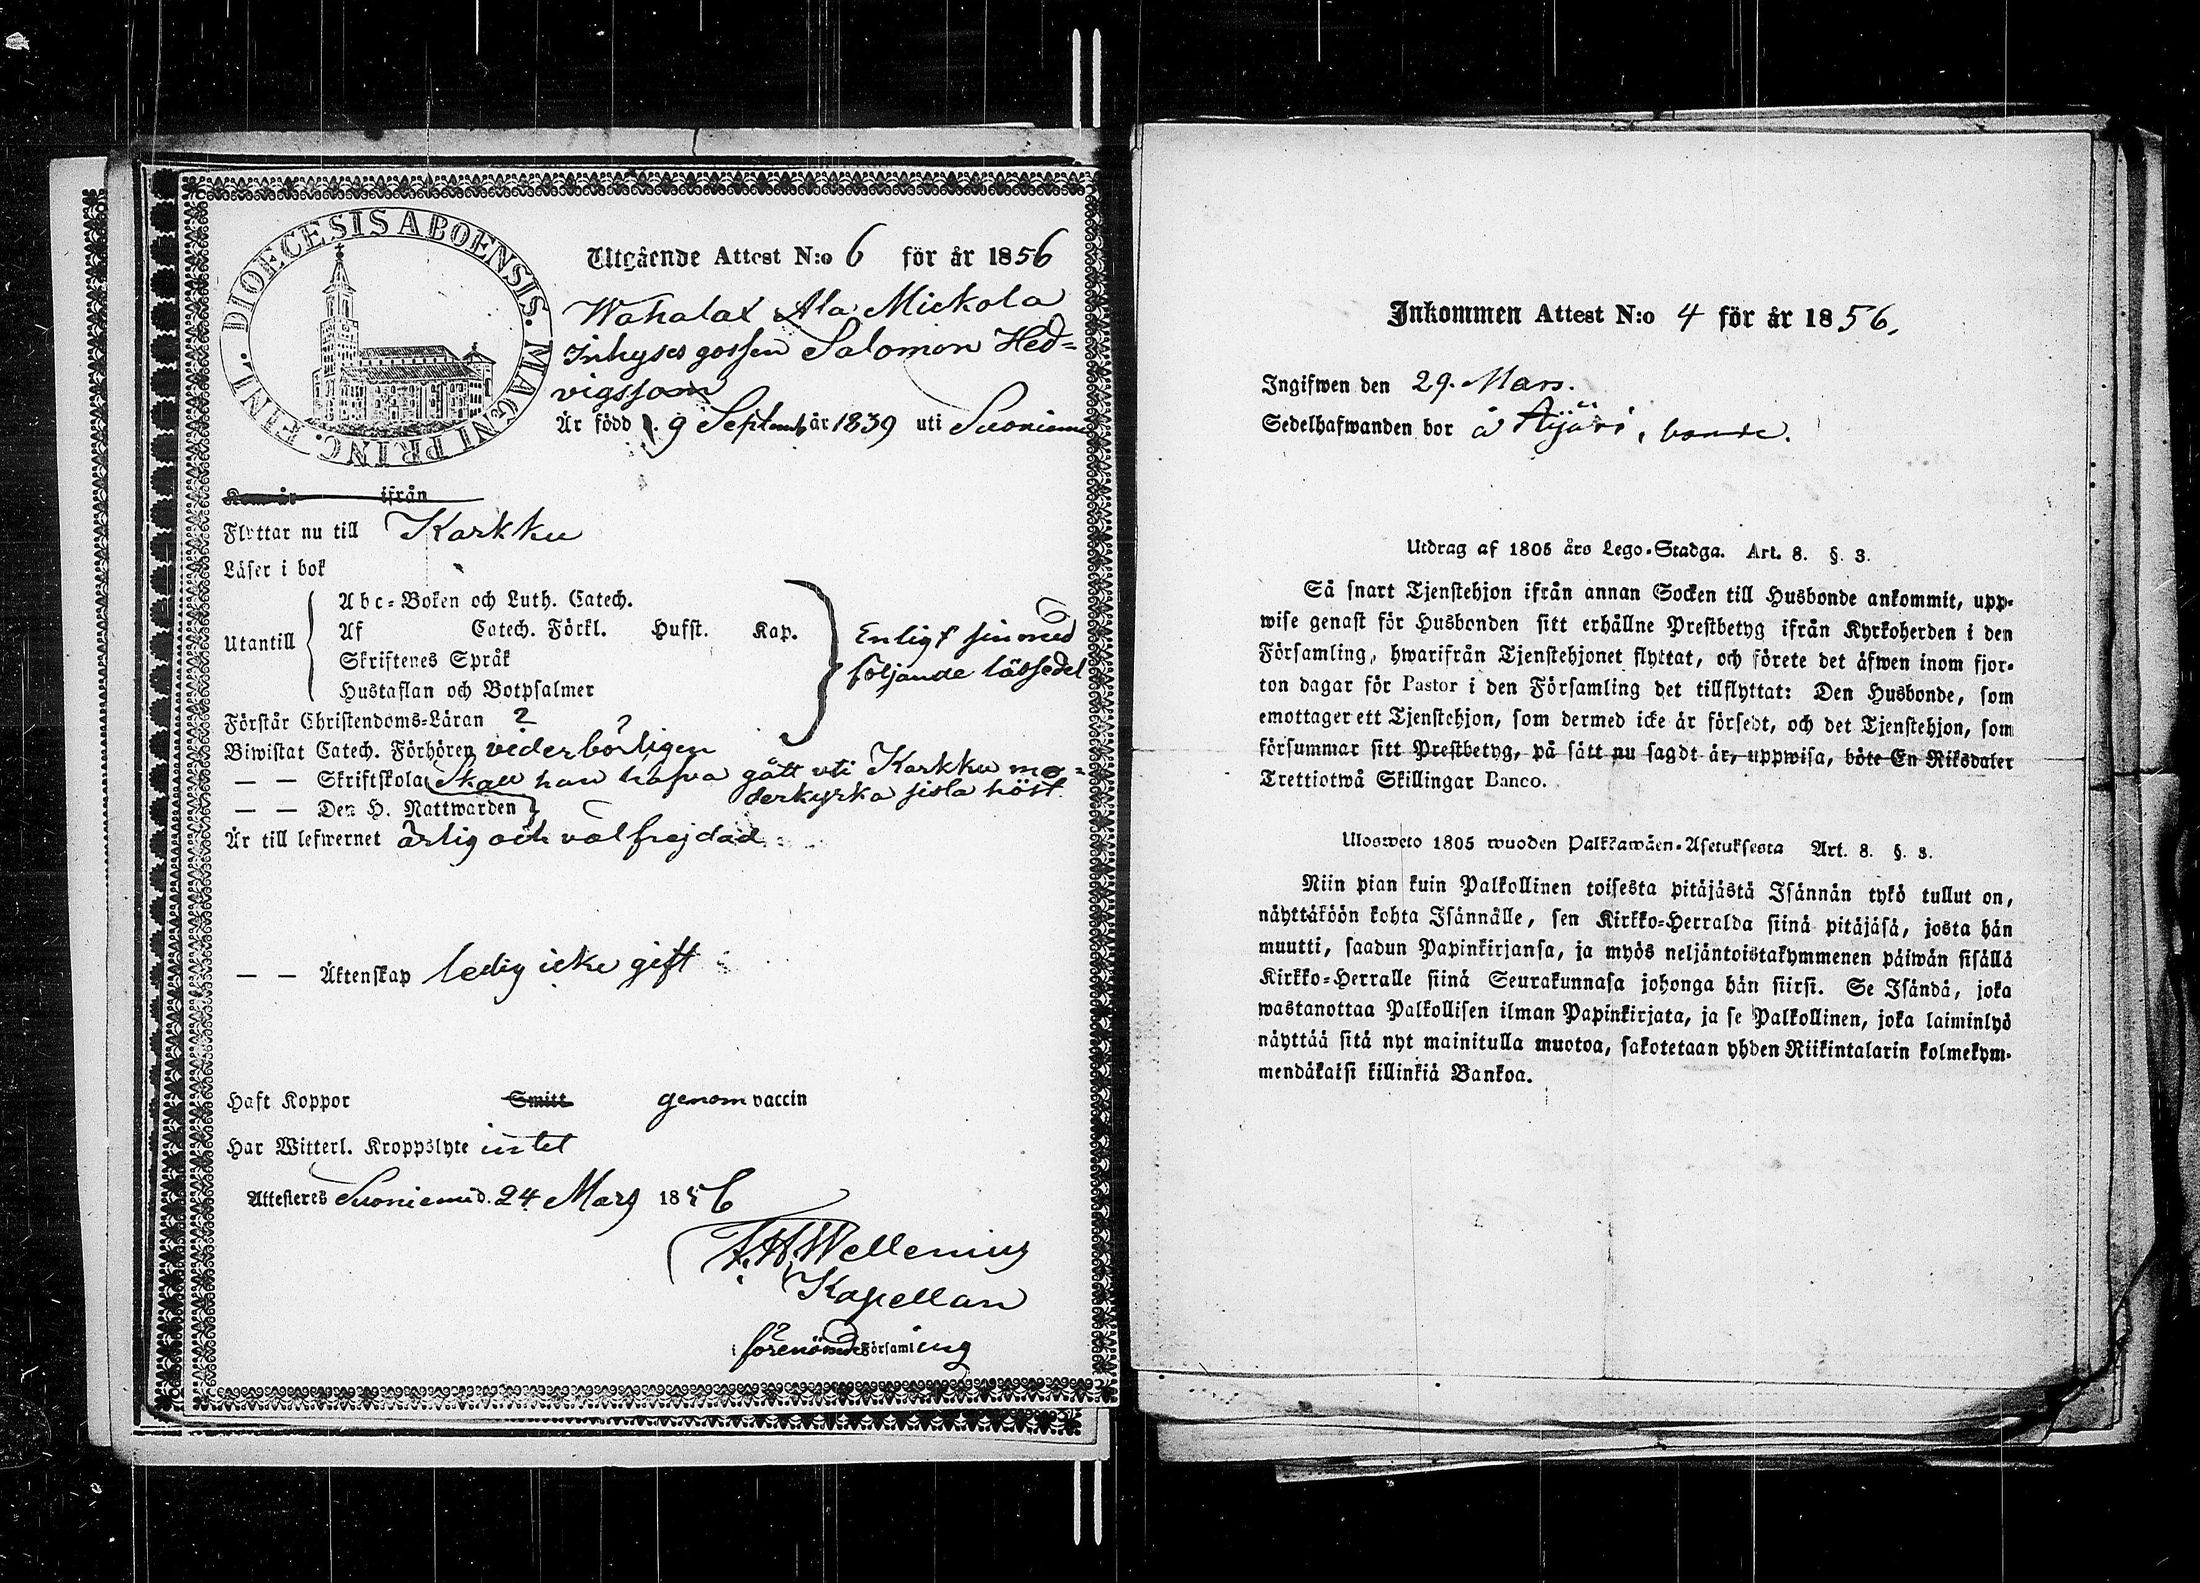 DIOECESIS ABOENSIS. MAGNI PRINC. FINL.
Utgående Attest N:o 6 för år 1856
Wahalax Ala Mickola
Inhyses gossen Salomon Hed-
vigsson
Är född d. 9 Septemb år 1839 uti Suoniemi
Kom år ifrån
Flyttar nu till Karkku
Läser i bok
Utantill
Abc-Boken och Luth. Catech.
Af Catech. Förkl. Hufst. Kap.
Skriftenes Språk
Hustaflan och Botpsalmer
Enligt sin med
följande lässedel
Förstår Christendoms-Läran ?
Biwistat Catech. Förhören vederbörligen
— — Skriftskola Skall han hafva gått uti Karkku mo-
derkyrka sista höst
— — Den H. Nattwarden
Är till lefwernet ärlig och välfrejdad
— — Äktenskap ledig icke gift
Haft Koppor Smitt genom vaccin
Har Witterl. Kroppslyte intet
Attesteres Suoniemi d. 24 Mars 1856
F. H. Wellenius
Kapellan
i förenämde Församling
Inkommen Attest N:o 4 för år 1856.
Ingifwen den 29. Mars.
Sedelhafwanden bor å Äijäri, bonde.
Utdrag af 1805 års Lego-Stadga. Art. 8. §. 3.
Så snart Tjenstehjon ifrån annan Socken till Husbonde ankommit, upp-
wise genast för Husbonden sitt erhållne Prestbetyg ifrån Kyrkoherden i den
Församling, hwarifrån Tjenstehjonet flyttat, och förete det äfwen inom fjor-
ton dagar för Pastor i den Församling det tillflyttat: Den Husbonde, som
emottager ett Tjenstehjon, som dermed icke är försedt, och det Tjenstehjon, som
försummar sitt Prestbetyg, på sätt nu sagdt är, uppwisa, böte En Riksdaler
Trettiotwå Skillingar Banco.
Ulosweto 1805 wuoden Palkkawäen-Asetuksesta Art. 8. §. 3.
Niin pian kuin Palkollinen toisesta pitäjästä Isännän tykö tullut on,
näyttäköön kohta Isännälle, sen Kirkko-Herralda siinä pitäjäsä, josta hän
muutti, saadun Papinkirjansa, ja myös neljäntoistakymmenen päiwän sisällä
Kirkko-Herralle siinä Seurakunnasa johonga hän siirsi. Se Isändä, joka
wastanottaa Palkollisen ilman Papinkirjata, ja se Palkollinen, joka laiminlyö
näyttää sitä nyt mainitulla muotoa, sakotetaan yhden Riikintalarin kolmekym-
mendäkaksi killinkiä Bankoa.